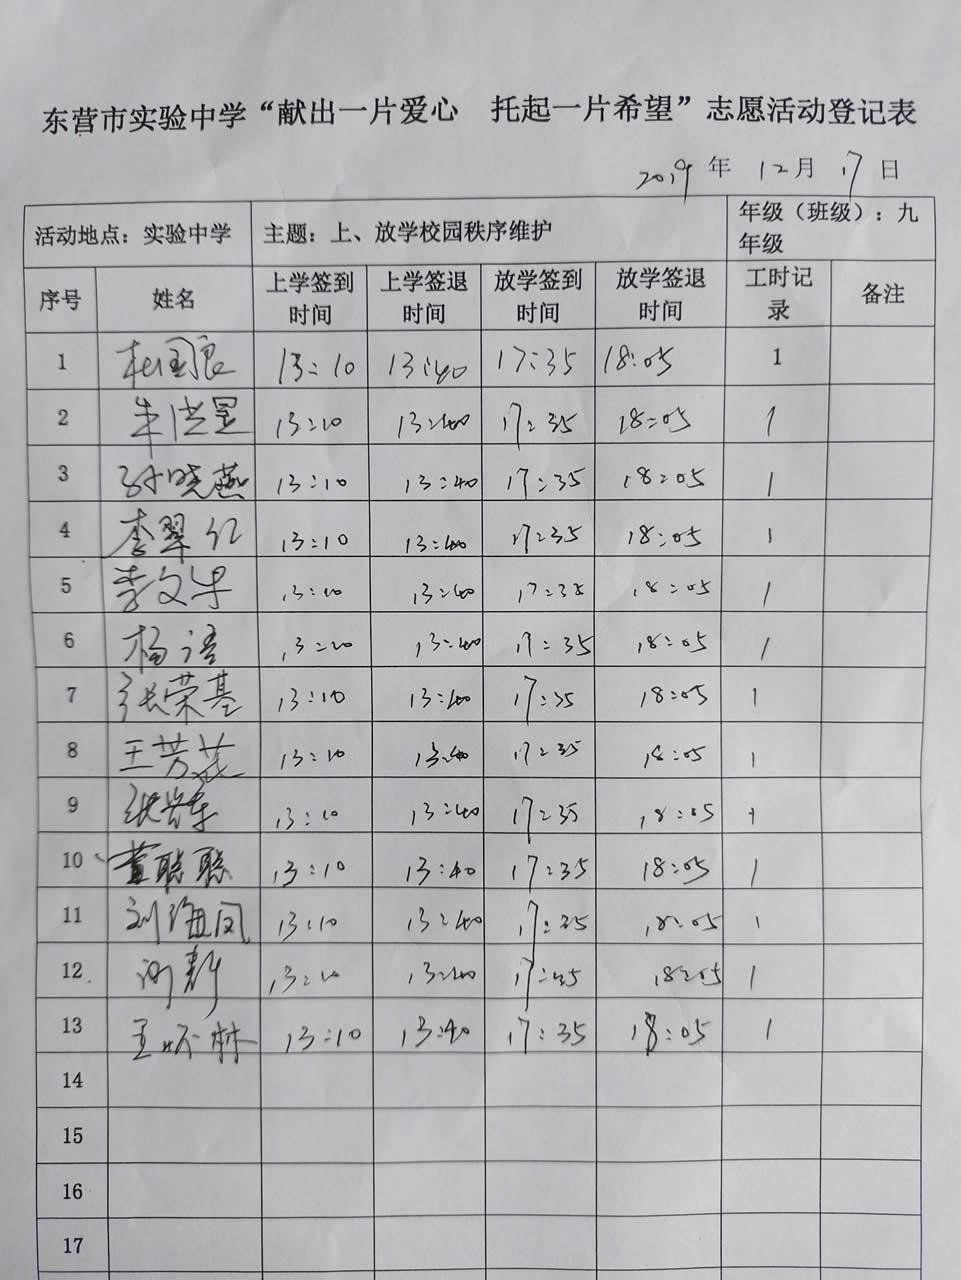 东营市实验中学“献出一片爱心 托起一片希望”志愿活动登记表
2019年12月17日
活动地点：实验中学 主题：上、放学校园秩序维护 年级（班级）：九年级
序号 姓名 上学签到时间 上学签退时间 放学签到时间 放学签退时间 工时记录 备注
1 杜国良 13:10 13:40 17:35 18:05 1
2 朱洪昱 13:10 13:40 17:35 18:05 1
3 孙晓燕 13:10 13:40 17:35 18:05 1
4 李翠红 13:10 13:40 17:35 18:05 1
5 李文华 13:10 13:40 17:35 18:05 1
6 杨语 13:20 13:40 17:35 18:05 1
7 张荣基 13:10 13:40 17:35 18:05 1
8 王芳 13:10 13:40 17:35 18:05 1
9 张 13:10 13:40 17:35 18:05 1
10 董聪聪 13:10 13:40 17:35 18:05 1
11 刘海凤 13:10 13:40 17:35 18:05 1
12 13:10 13:40 17:35 18:05 1
13 王 林 13:10 13:40 17:35 18:05 1
14
15
16
17